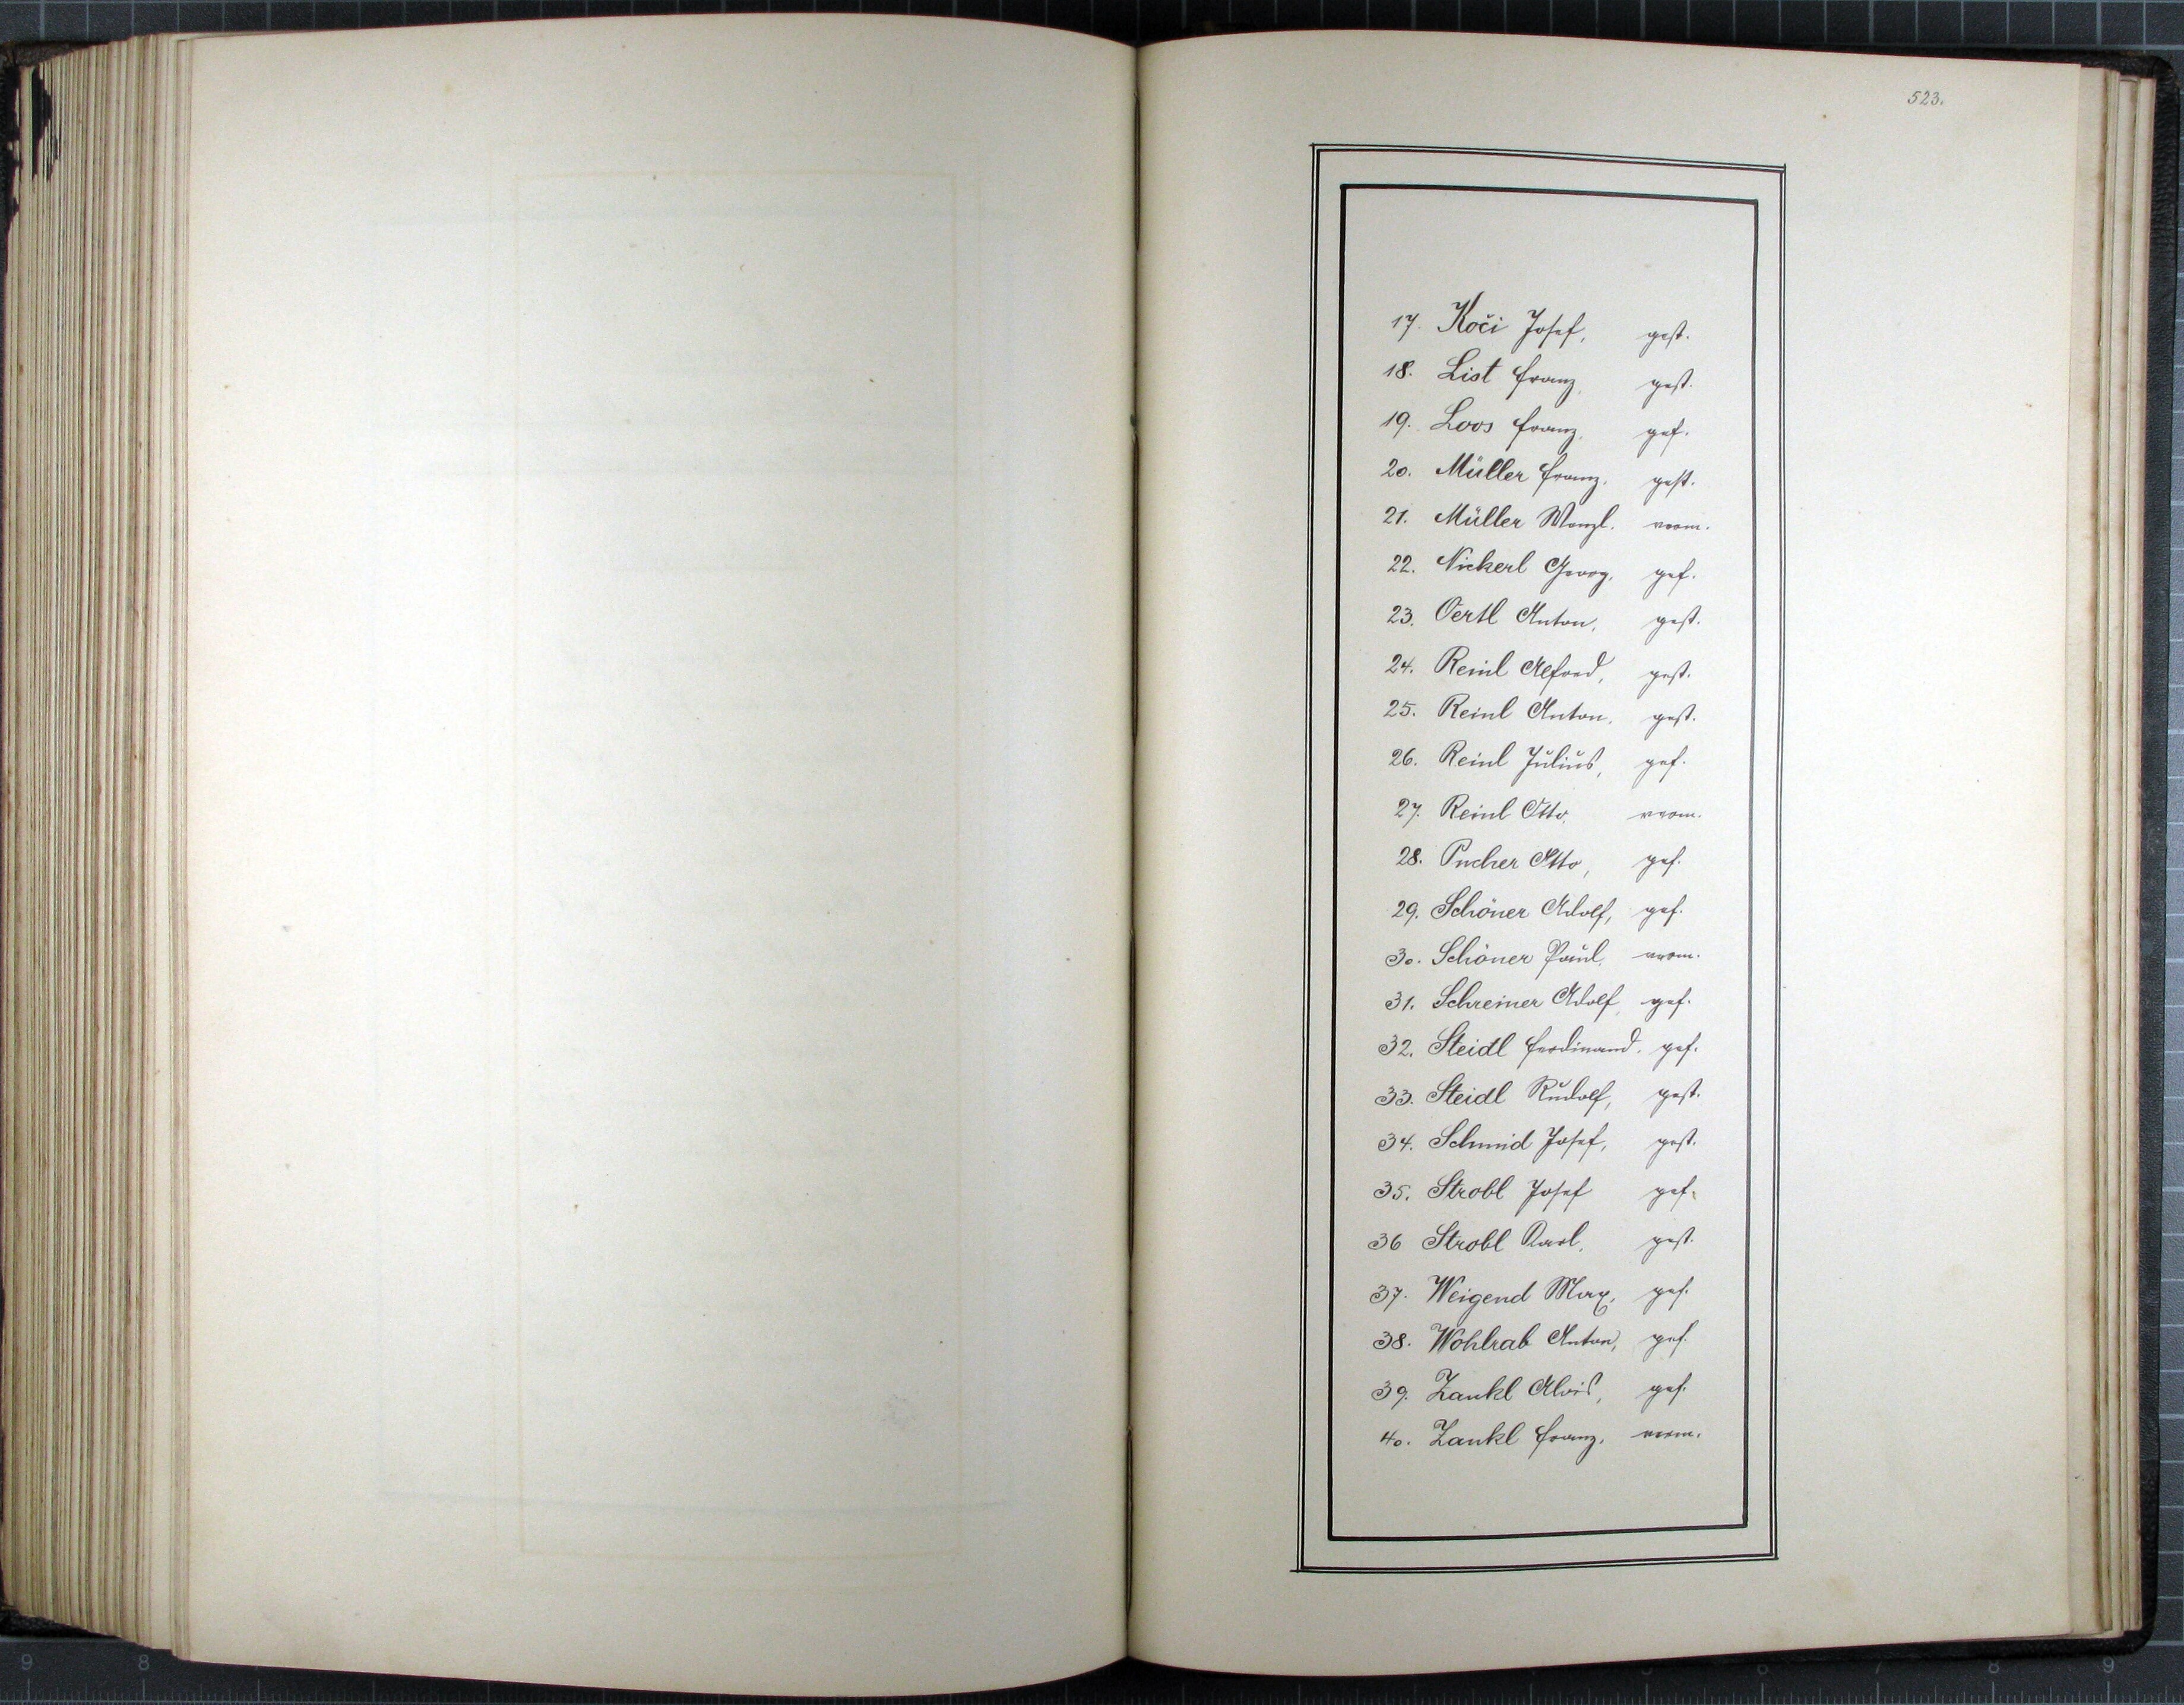 523.
17. Koči Josef, gest.
18. List Franz, gest.
19. Loos Franz, gef.
20. Müller Franz, gest.
21. Müller Wenzl. verm.
22. Nickerl Georg, gef.
23. Oertl Anton, gest.
24. Reinl Alfred, gest.
25. Reinl Anton, gest.
26. Reinl Julius, gef.
27. Reinl Otto, verm.
28. Pucher Otto, gef.
29. Schöner Adolf, gef.
30. Schöner Paul, verm.
31. Schreiner Adolf, gef.
32. Steidl Ferdinand. gef.
33. Steidl Rudolf, gest.
34. Schmid Josef, gest.
35. Strobl Josef gef.
36 Strobl Karl, gest.
37. Weigend Max, gef.
38. Wohlrab Anton, gef.
39. Zankl Alois, gef.
40. Zankl Franz, verm.
9 8 5 6 7 8 9